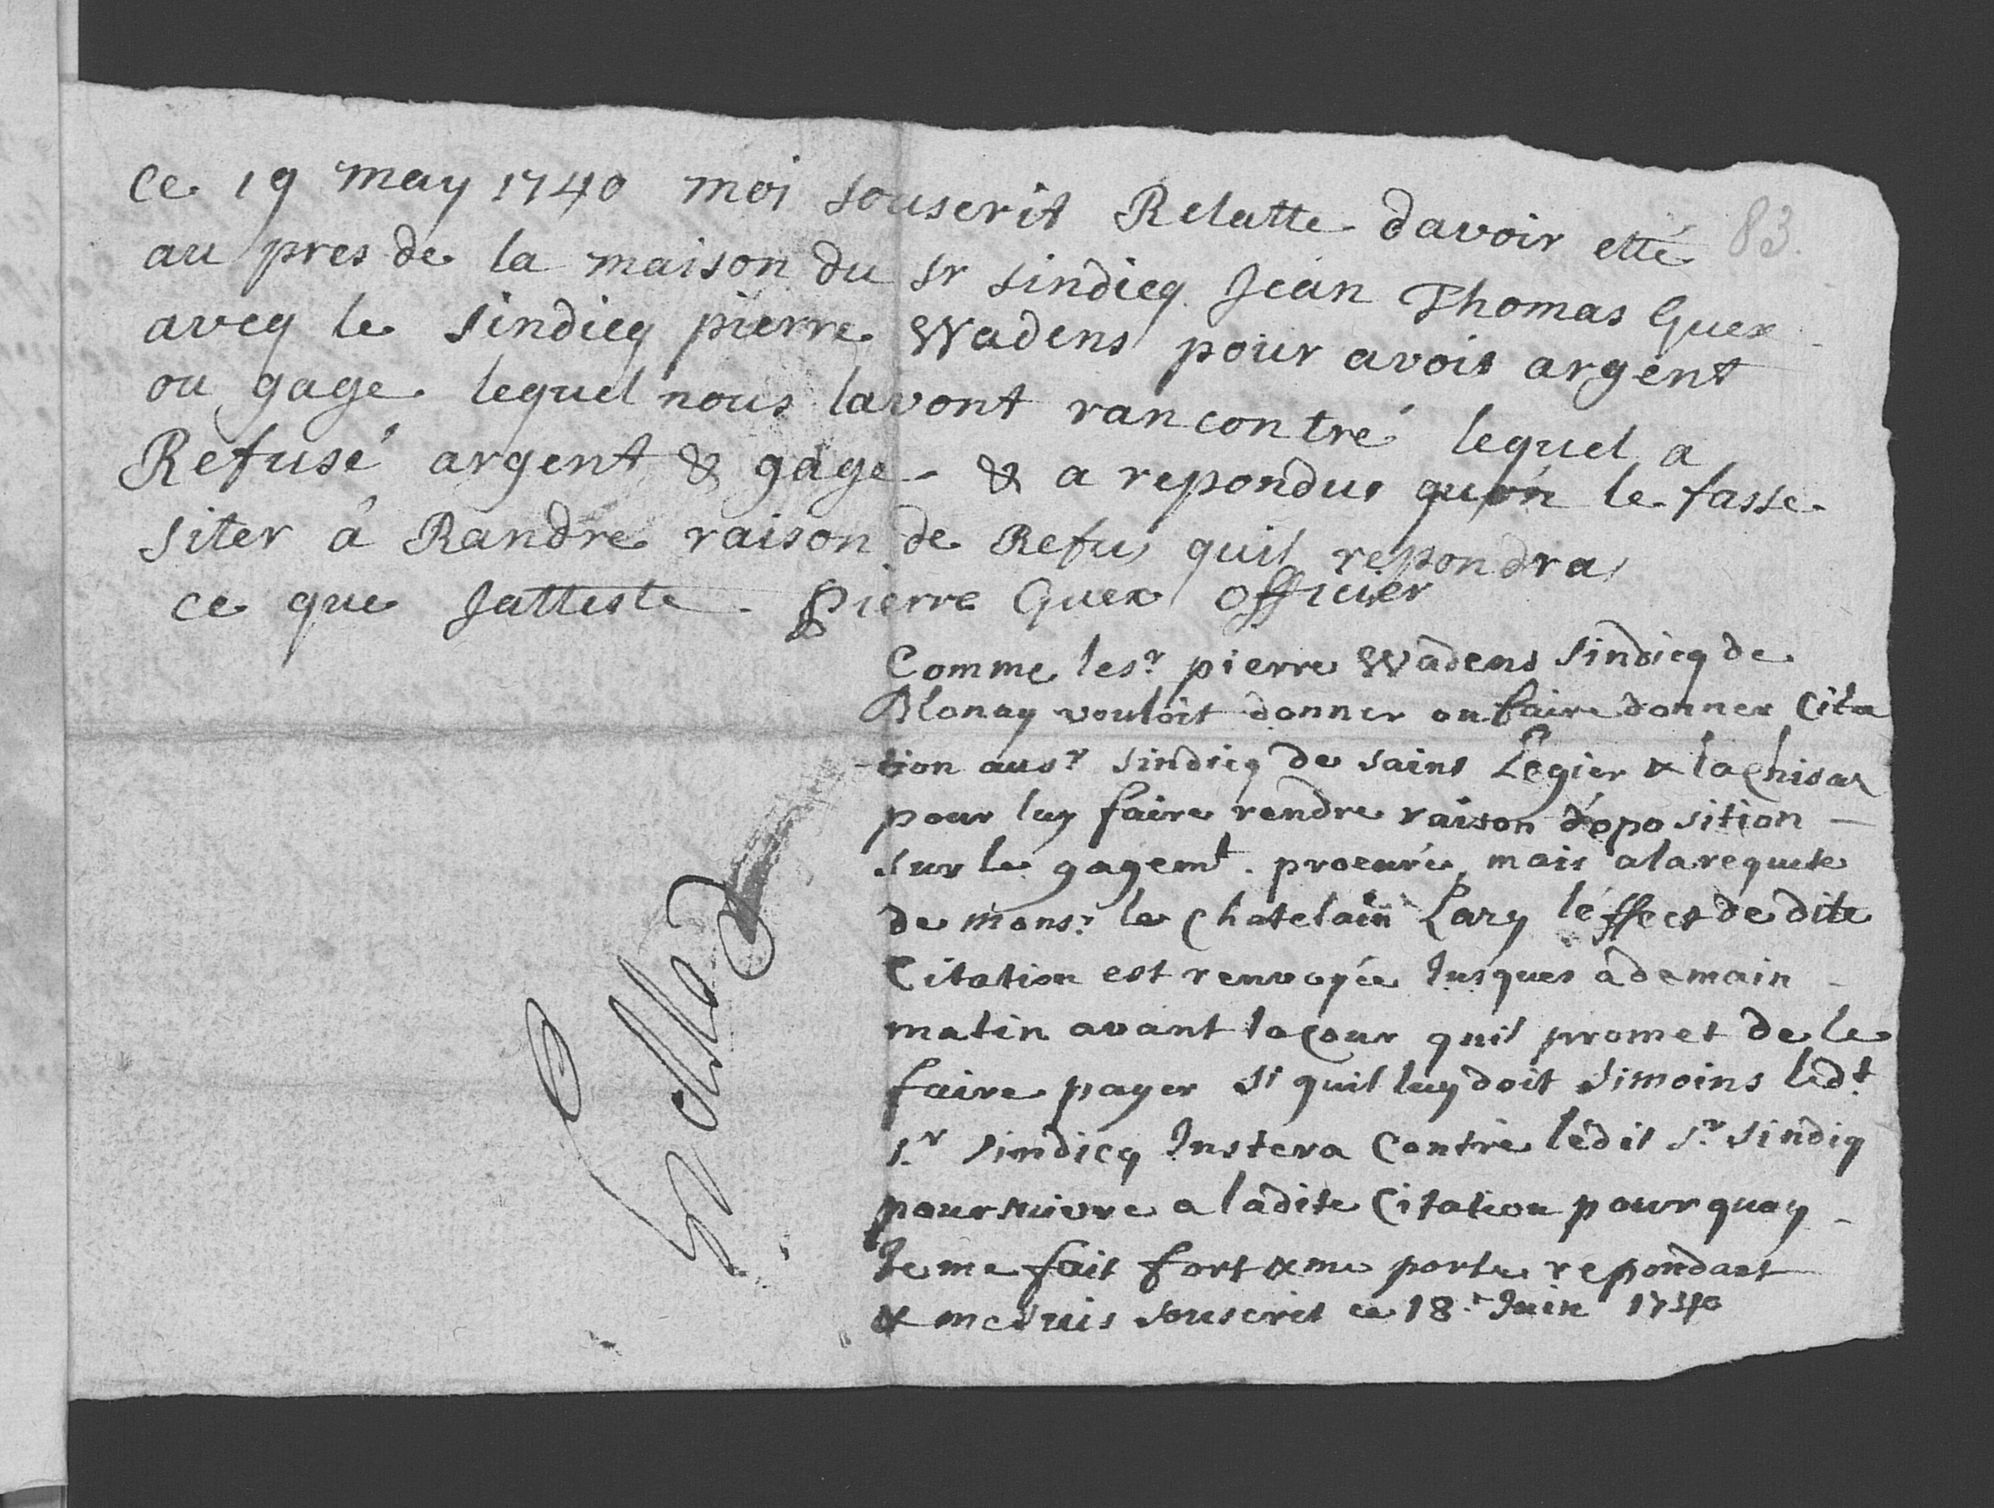 Ce 19 may 1740 moi souscrit Relatte davoir etté
83.
au pres de la maison du Sr sindicq Jean Thomas Guex
aveq le sindicq pierre Wadens pour avoir argent
ou gage lequel nous lavont rancontré lequel a
Refusé argent & gage & a repondus quon le fasse
siter á Randre raison de Refus quil repondra
ce que Jatteste. Pierre Guex officier
Comme le Sr. pierre Wadens sindicq de
Blonay vouloit donner ou faire donner Cita
-tion au Sr. sindicq de saint Légier & la Chisaz
pour luy faire rendre raison d'oposition
sur le gagemt. procuré, mais a la requete
de Monsr. le Chatelain léffect de dite
Citation est renvoyée Jusques â demain
matin avant la Cour quil promet de le
faire payer si quil luy doit simoins ledt.
Sr. sindicq Instera Contre lédit Sr. sindiq
poursuivre a ladite Citation pourquoy
Je me fait fort & me porte repondant
& me suis souscrit ce 18.e Juin 1740